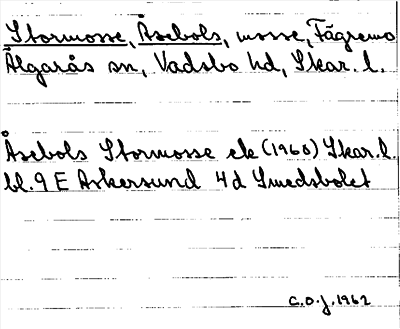 Stormosse, Åsebols, mosse, Fägremo
Älgarås sn, Vadsbo hd, Skar. l.
Åsebols Stormosse ek (1960) Skar. l.
bl. 9 E Askersund 4d Smedsbolet
C.O.J. 1962